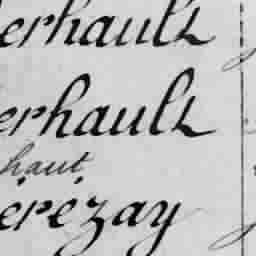 erhault
erhault
haut
erézay